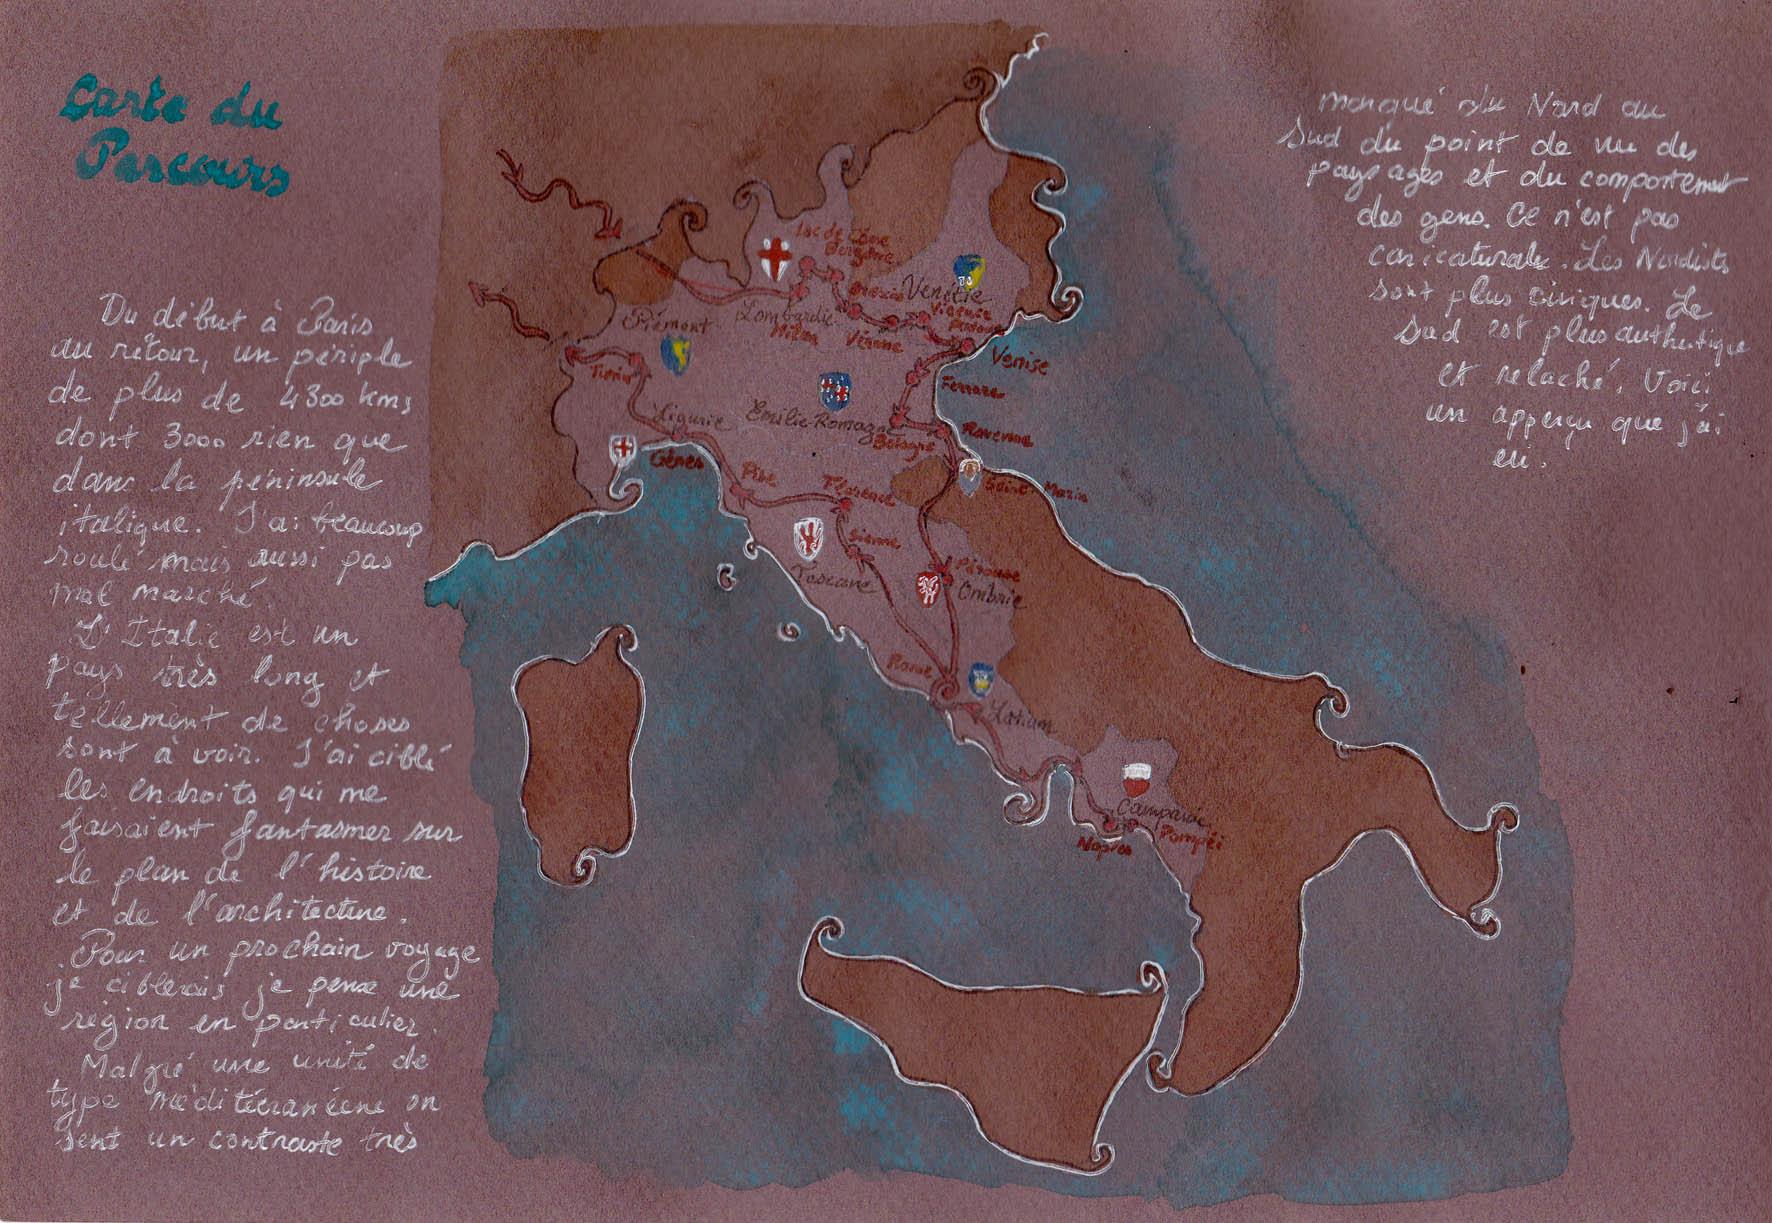 Carte du
Parcours
Du début à Paris
au retour, un périple
de plus de 4300 kms
dont 3000 rien que
dans la péninsule
italique. J'ai beaucoup
roulé mais aussi pas
mal marché.
L'Italie est un
pays très long et
tellement de choses
sont à voir. J'ai ciblé
les endroits qui me
faisaient fantasmer sur
le plan de l'histoire
et de l'architecture.
Pour un prochain voyage
je ciblerais je pense une
région en particulier.
Malgré une unité de
type méditéranéene on
sent un contraste très
marqué du Nord au
Sud du point de vu des
paysages et du comportement
des gens. Ce n'est pas
caricaturale. Les Nordists
sont plus civiques. Le
Sud est plus authentique
et relaché. Voici
un apperçu que j'ai
eu.
Lac de Côme
Bergame
Brescia
Venétie
Vicence
Padoue
Piémont
Lombardie
Milan
Vérone
Venise
Turin
Ferrare
Ligurie
Emilie-Romagne
Bologne
Ravenne
Gênes
Pise
Florence
Saint-Marin
Sienne
Toscane
Pérouse
Ombrie
Rome
Latium
Campanie
Naples
Pompéi